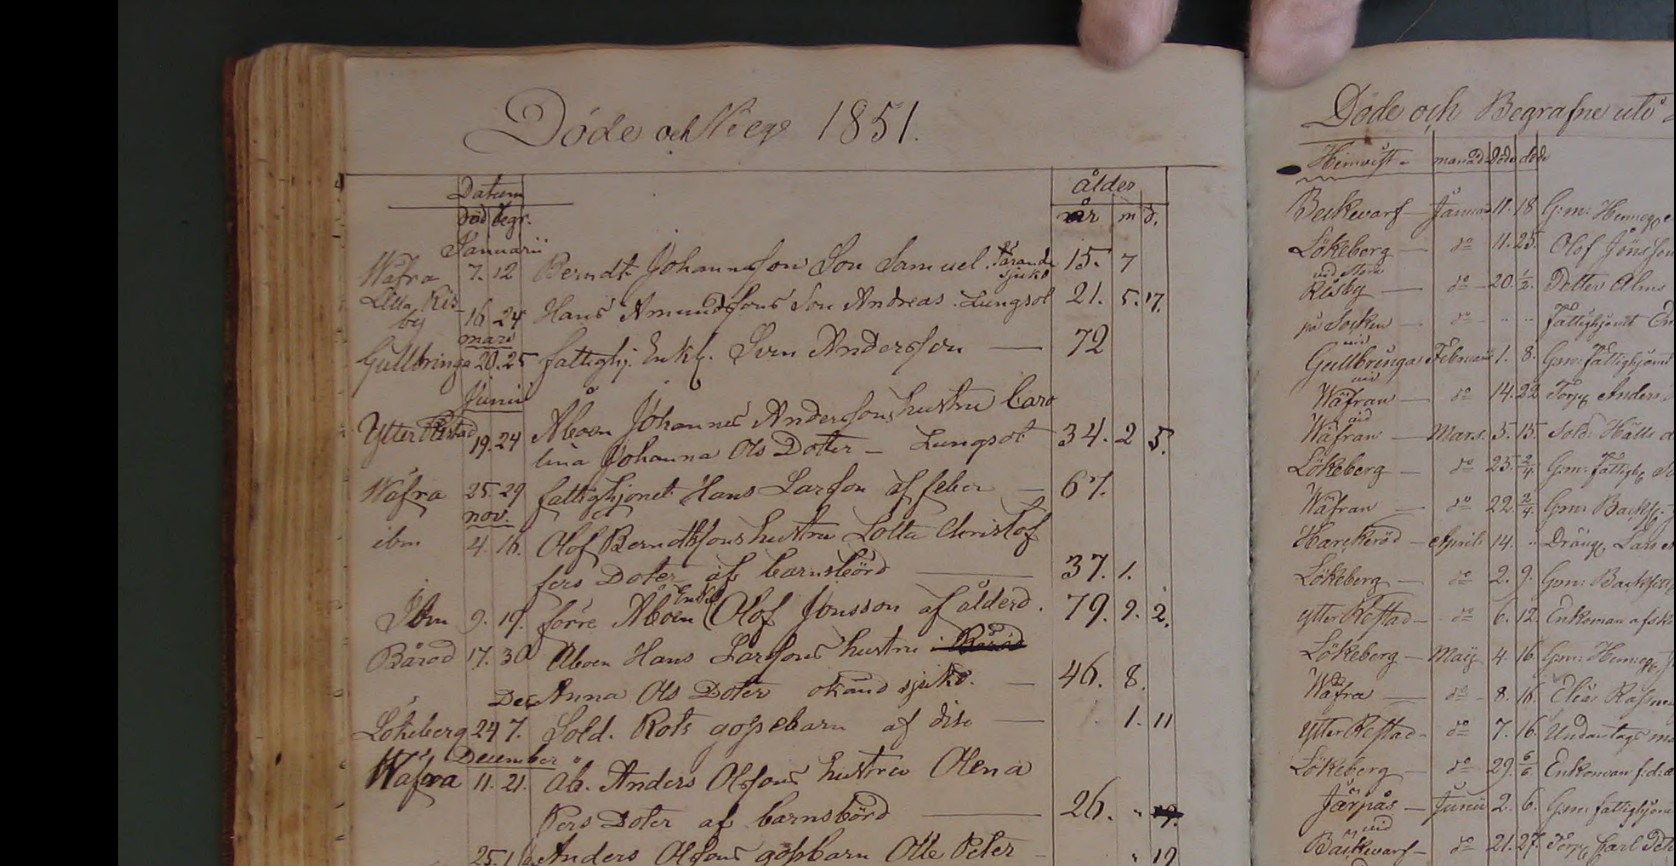 Döde och Begr 1851.
Datum
död begr.
ålder
år m d.
Januarii
Wäfra 7. 12 Berndt Johannesson Son Samuel Tärande sjukd 15. 7
Lilla Ris
by 16 24 Hans Amundssons Son Andreas Lungsot 21. 5. 17.
mars
Gullbringa 20. 25 fattighj. Enkl. Sven Andersson — 72
Junii
Åboen Johannes Anderssons hustru Caro
Ytter Restad 19. 24 lina Johanna Ols Dotter — Lungsot 34. 2 5.
Wäfra 25. 29 fattighjonet Hans Larsson af feber — 67.
nov.
ibm 4. 16. Olof Berndtssons hustru Lotta Christof
fers Doter af barnsbörd — 37. 1.
Ibm 9. 19. förre Åboen Enkl Olof Jonsson af ålderd. 79. 9. 2.
Båröd 17. 30 Åboen Hans Larssons hustru
Dec Anna Ols Doter okänd sjukd. — 46. 8.
Lökeberg 29 7. Sold. Rots gossebarn af — 1. 11
December
Wäfra 11. 21. Åb. Anders Olssons hustru Olena
Pers Doter af barnsbörd — 26. "
25. Anders Olssons gossbarn Otto Peter " 19
Döde och Begrafne uti
Hemvist månad
Backevarf — Januari 11. 18 G:m: Hemmeg
Lökeberg — do 11. 25. Olof Jönsson
Risby — do 20. 1/2. Dotter Alma
på Socken — do " " Fattighjonet
Gullbringa Februari 1. 8. Gm: Fattighjonet
Wäfran — do 14. 22 Torp. Anders
Wäfran — Mars. 5. 15. Sold: Hålls
Lökeberg — do 25. 2/4. Gm: Fattigh.
Wäfran — do 22. 2/4. Gm: Backs.
Harkeröd — April 14. " Dräng. Lars
Lökeberg — do 2. 9. Gm: Backsitt
Ytter Restad — do 6. 12. Enkoman
Lökeberg — Maij 4. 16 Gm: Hemeg.
Wäfra — do 8. 16. Elias
Ytter Restad — do 7. 16. Undantags
Lökeberg — do 29. 6/6 Enkoman f.d.
Järpås — Junii 2. 6. Gm: fattighjon
Backevarf — do 21. 27. Torp. Carl